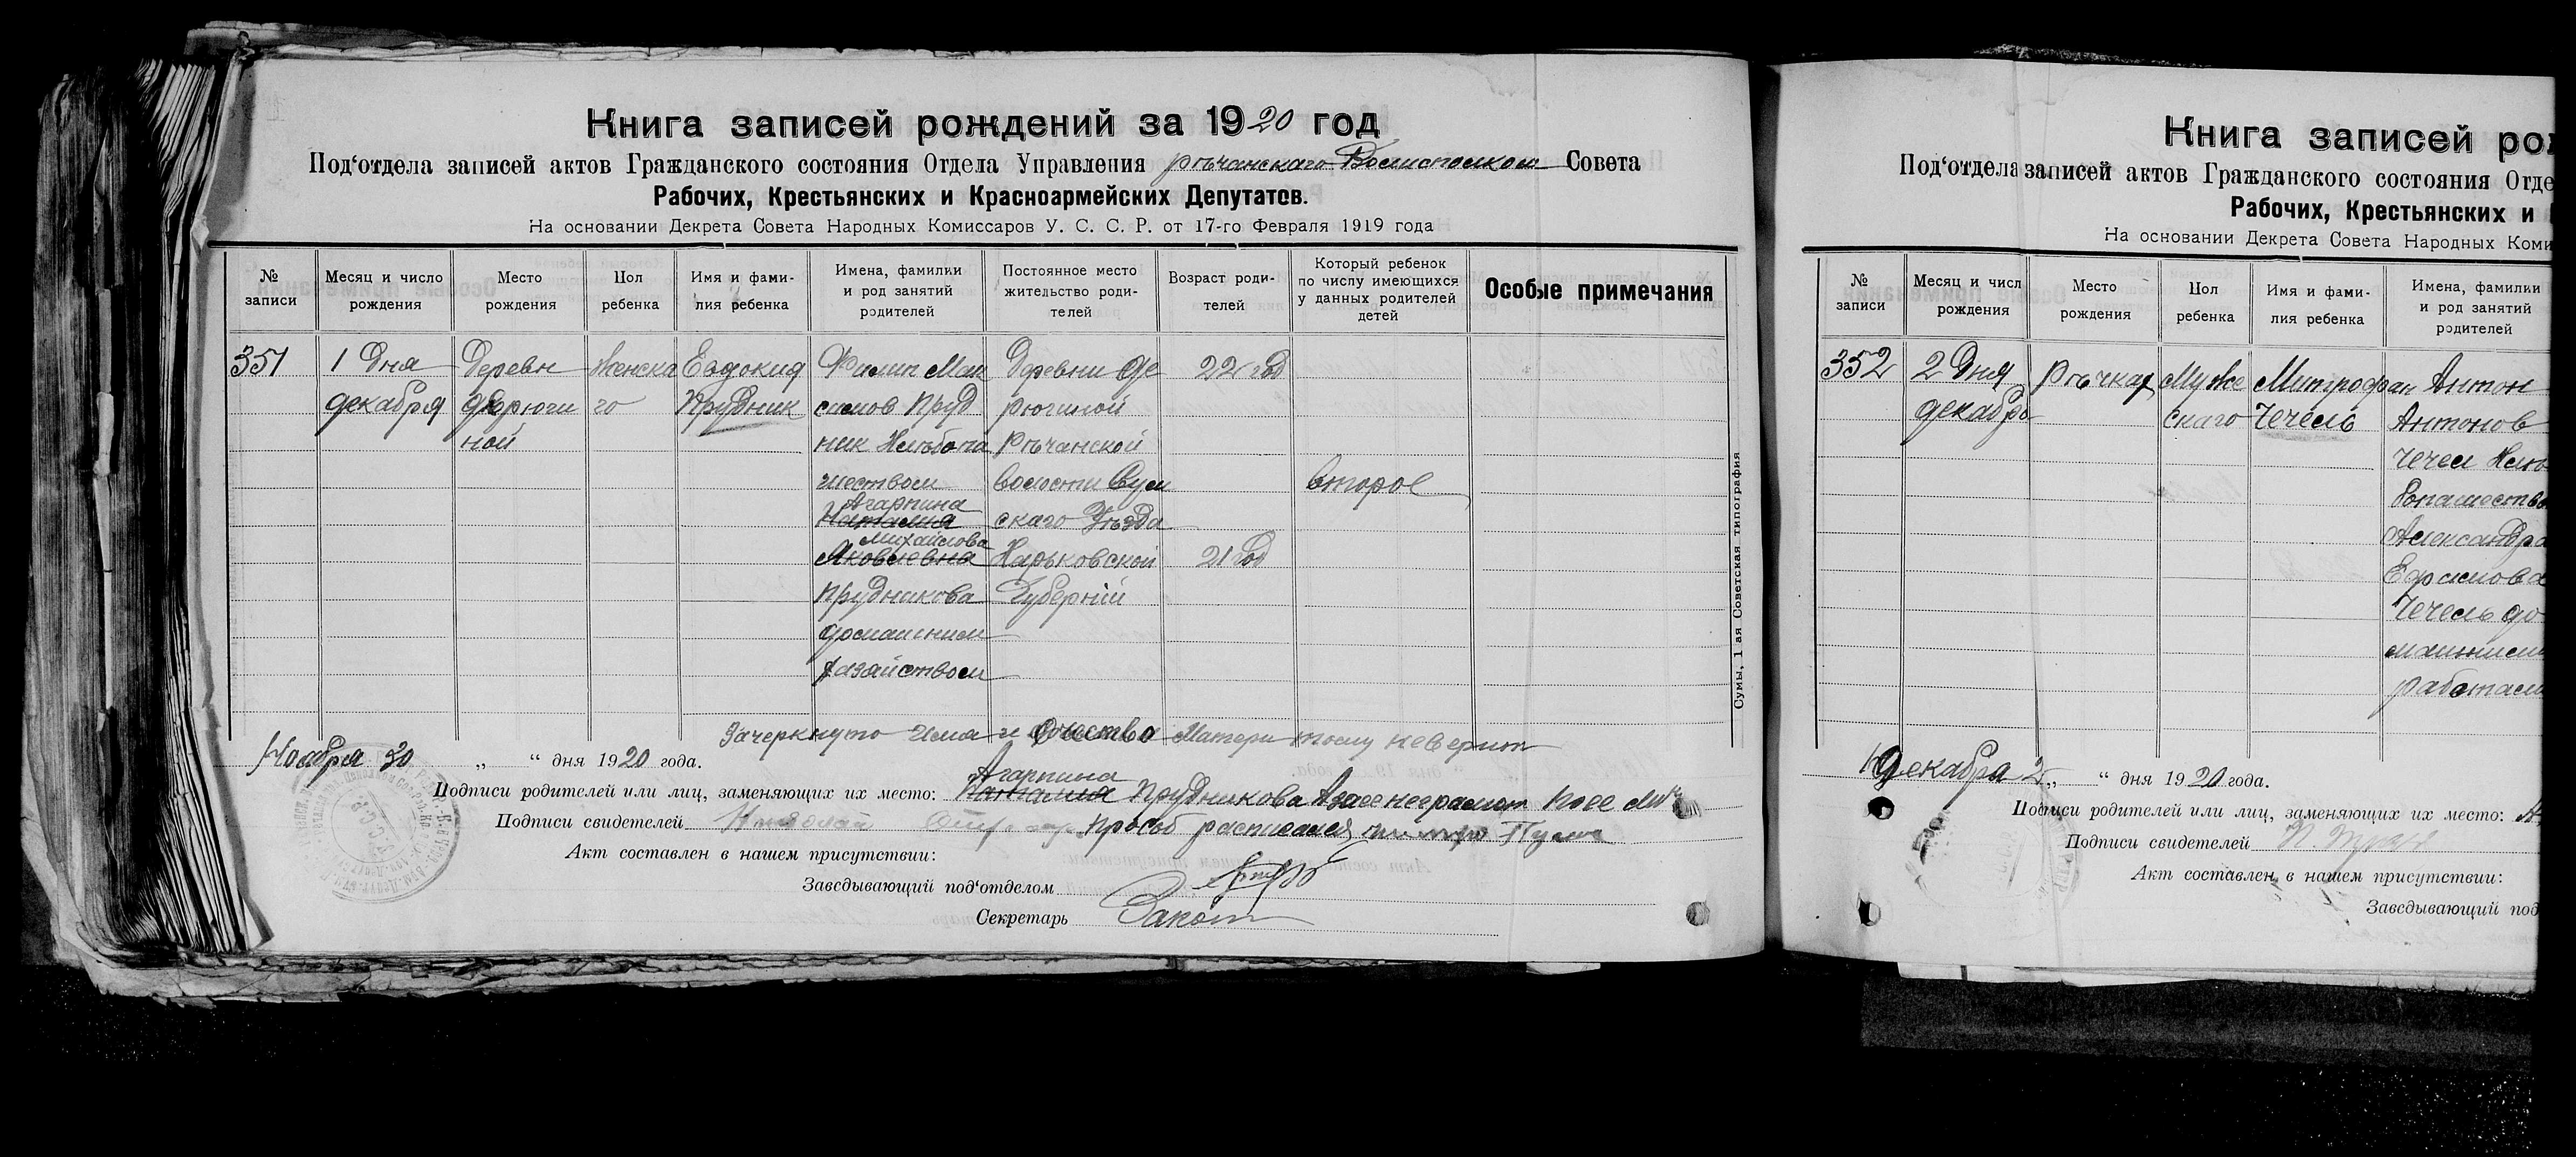 Книга записей рождений за 1920 год
Под‘отдела записей актов Гражданского состояния Отдела Управления Рѣчанскаго Волисполком Совета
Рабочих, Крестьянских и Красноармейских Депутатов.
На основании Декрета Совета Народных Комиссаров У. С. С. Р. от 17-го Февраля 1919 года
№ записи
Месяц и число рождения
Место рождения
Пол ребенка
Имя и фами-
лия ребенка
Имена, фамилии
и род занятий
родителей
Постоянное место
жительство роди-
телей
Возраст роди-
телей
Который ребенок
по числу имеющихся
у данных родителей
детей
Особые примечания
351
1 Дня
декабря
Деревн
Ферюги
ной
Женска
го
Евдокия
Прудник
Филип Мак
симов Пруд
ник Хлѣбопа
шеством
Агарпина
Наталия
Михайлова
Яковлевна
Прудникова
домашним
хазайством
Деревни Фе
рюгиной
Рѣчанской
волости Сум
скаго Уѣзда
Харьковской
Губерніи
22 год
21 год
второе
Зачеркнуто имя и отчество Матери тому неверит
Ноября 30 „ “ дня 1920 года.
Подписи родителей или лиц, заменяющих их место: Агарпина Наталия Прудникова Азаее неграмот По ее
Подписи свидетелей Николай прозьб расписался
Акт составлен в нашем присутствии:
Заведывающий под‘отделом
Секретарь
Сумы, 1-ая Советская типография
Книга записей рож
Под‘отдела записей актов Гражданского состояния Отде
Рабочих, Крестьянских и
На основании Декрета Совета Народных Коми
№ записи
Месяц и числ рождения
Место рождения
Пол ребенка
Имя и фами-
лия ребенка
Имена, фамилии
и род занятий
родителей
352
2 Дня
декабр
Рѣчках
Муже
скаго
Митрофан
Чечель
Антон
Антонов
Чечел Хлѣ
бопашество
Александра
Ефимова
Чечель до
машним
работам
Декабря 2 „ “ дня 1920 года.
Подписи родителей или лиц, заменяющих их место:
Подписи свидетелей
Акт составлен в нашем присутствии:
Заведывающий под